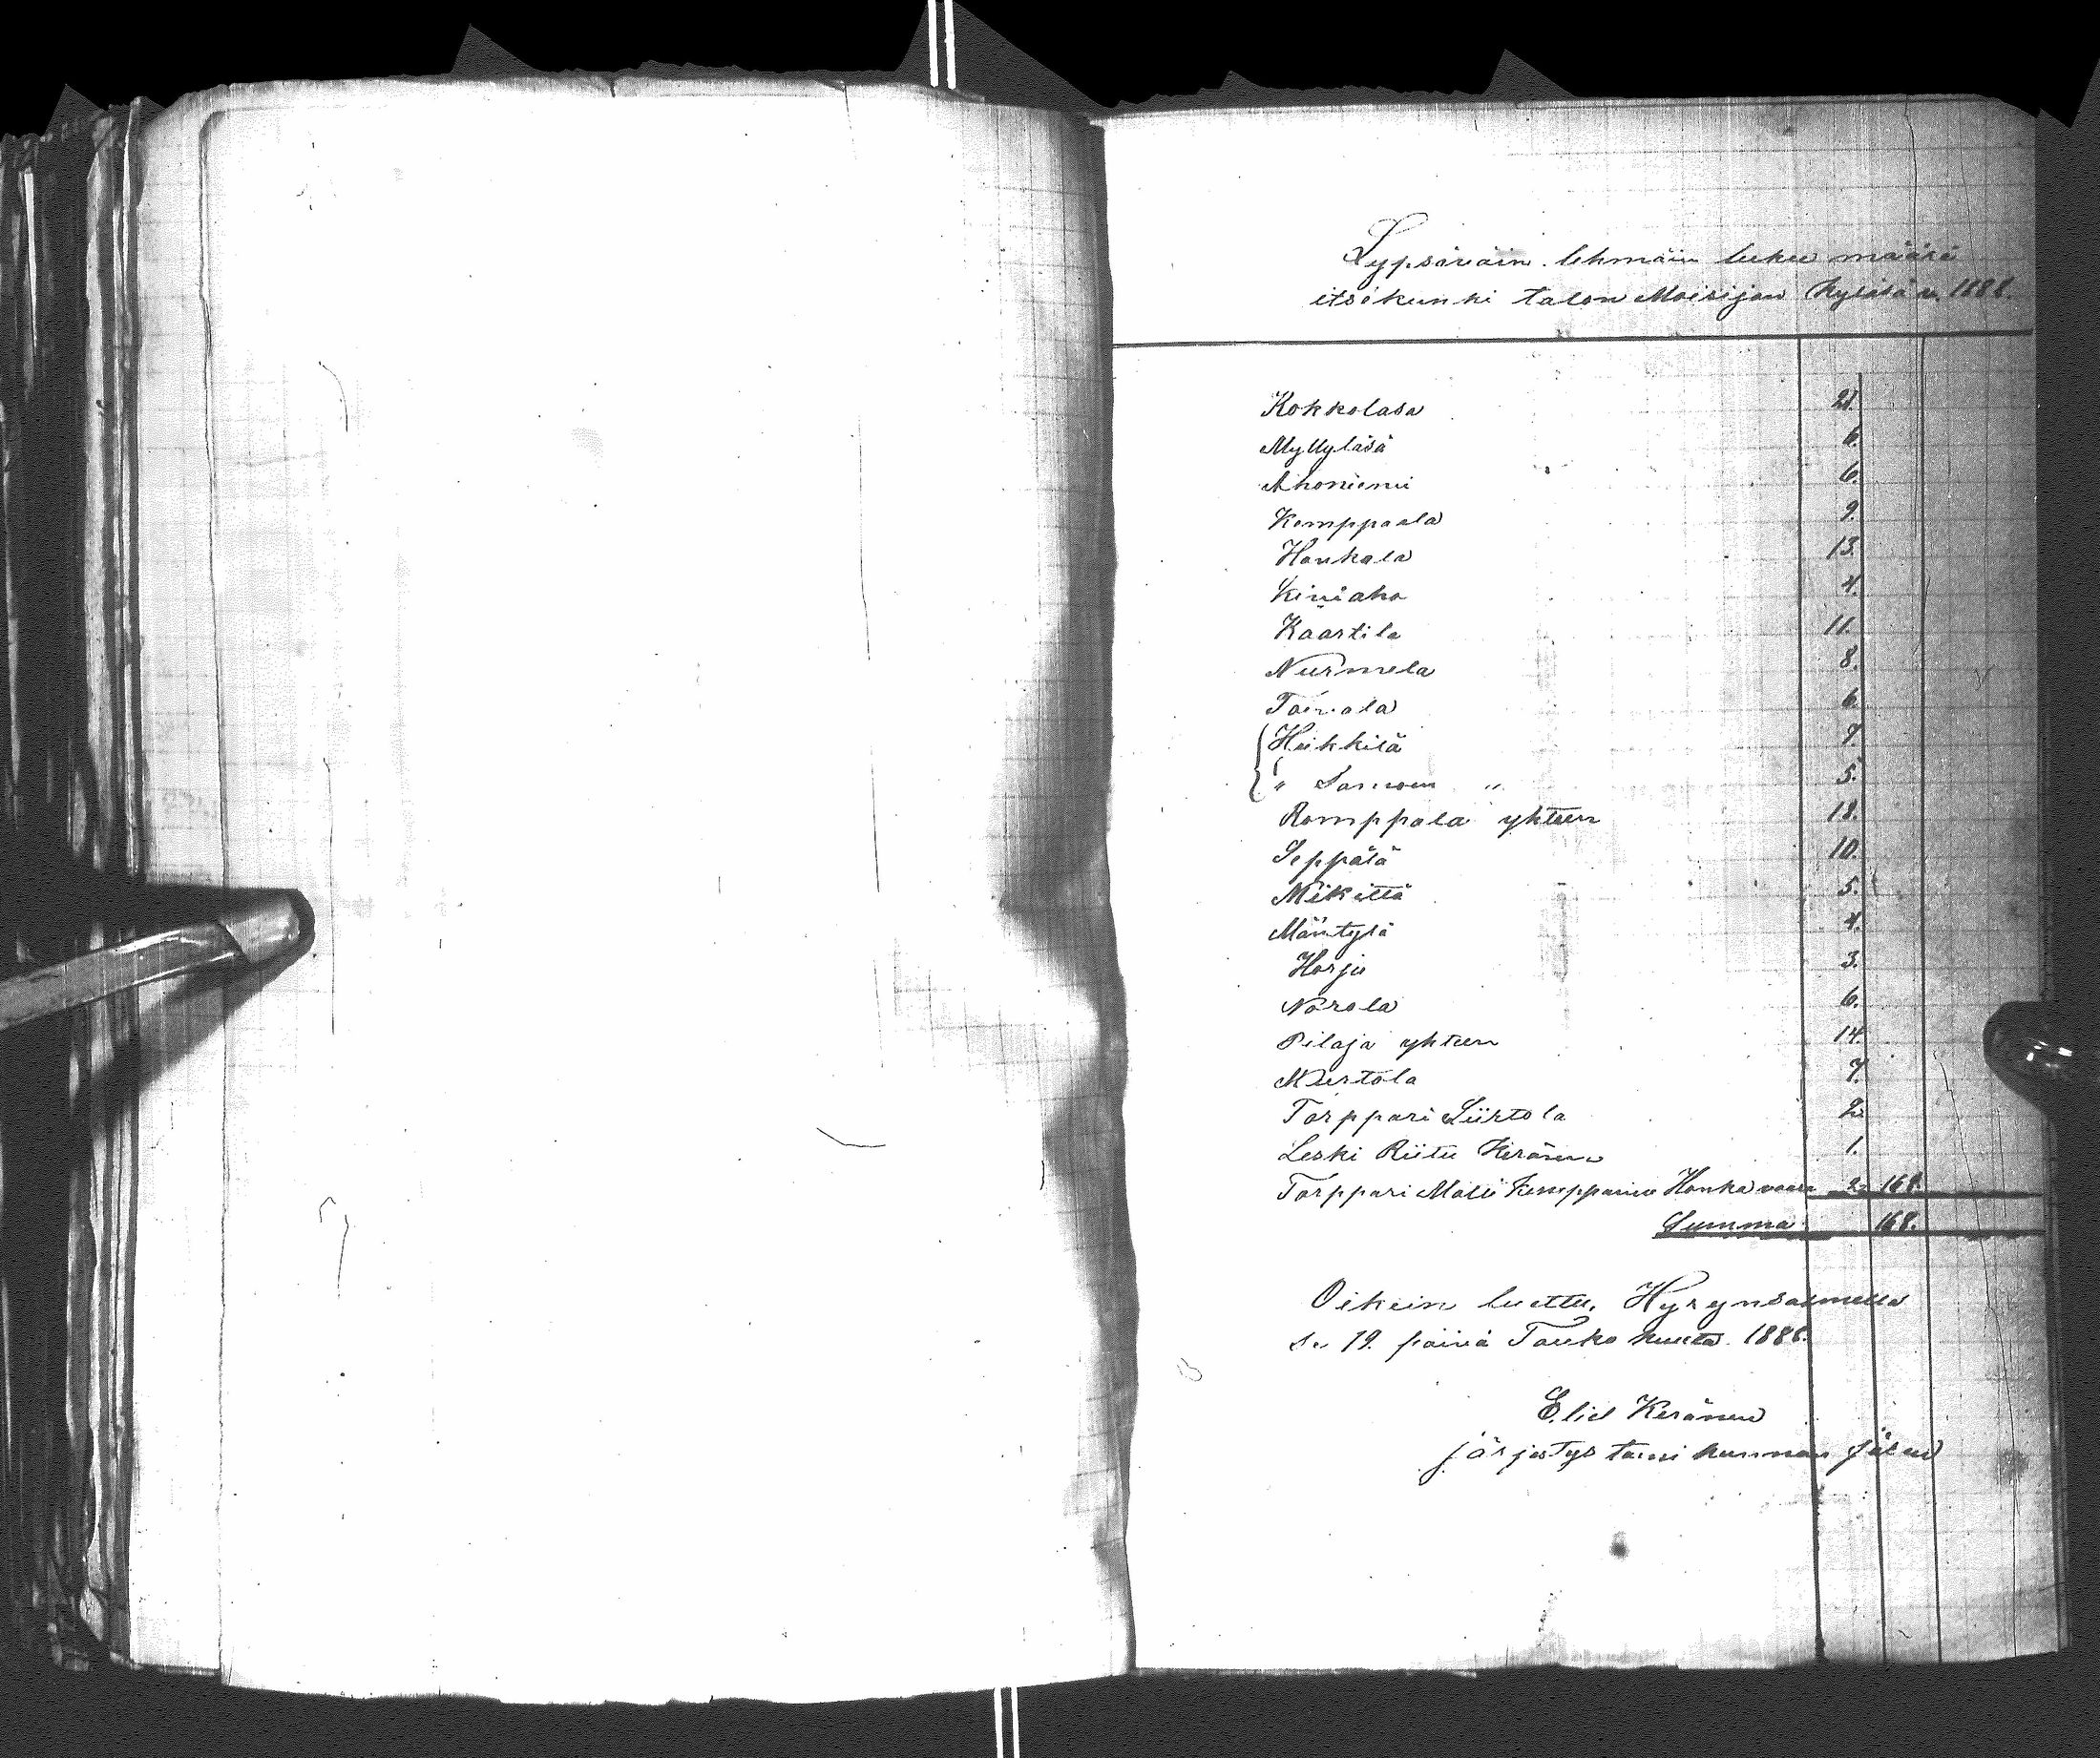 Lypsäväin lehmäin luku määrä
itsekunki talon Moisijan kylässä v. 1888.
Kokkolasa 21.
Myllyläsä 6.
Ahoniemi 6.
Komppaala 9.
Haukala 13.
Kiviaho 4.
Kaartila 11.
Nurmela 8.
Toivola 6.
Heikkilä 7.
" Samoin " 5.
Romppala yhteen 18.
Seppälä 10.
Mikittä 5.
Mäntylä 4.
Harju 3.
Norola 6.
Pilaja yhteen 14.
Murtola 7.
Torppari Siirtola 2.
Leski Riitu Keränen 1.
Torppari Matti Kemppainen Honkavaara 2. 168.
Summa 168.
Oikein luettu, Hyrynsalmella
se 19. päivä Touko kuuta 1888.
Eliel Keränen
järjestys toimi kunnan jäsen